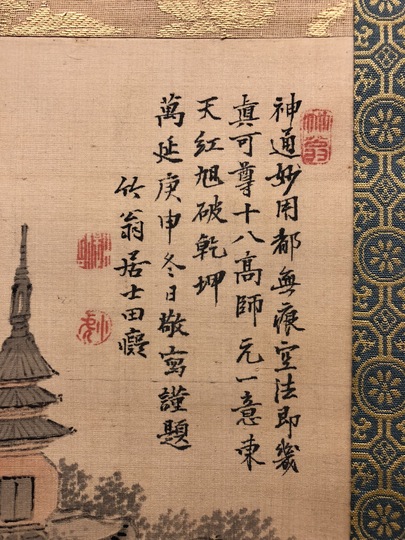 竹翁
神通妙用都無痕空法即幾
真可尊十八高師元一意東
天紅旭破乾坤
萬延庚申冬日敬寫謹題
竹翁居士田癡